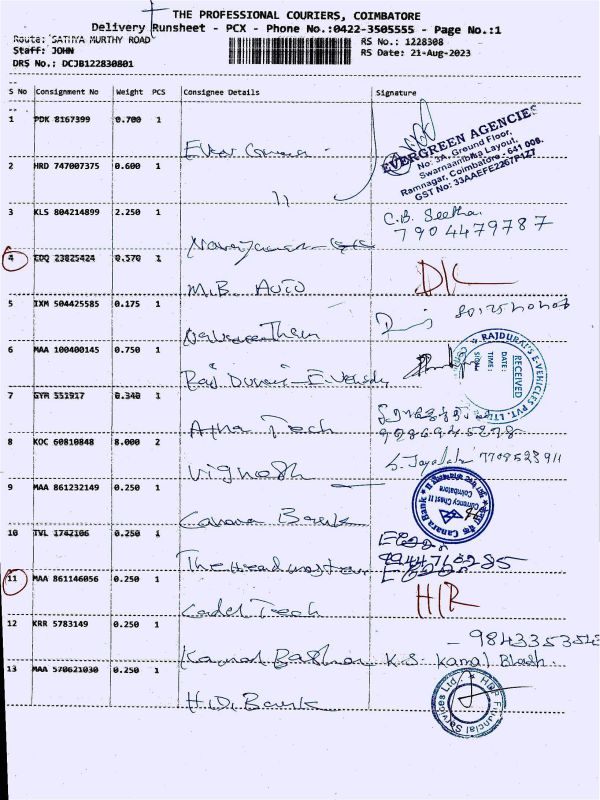 THE PROFESSIONAL COURIERS, COIMBATORE
Delivery Runsheet - PCX - Phone No.:0422-3505555 - Page No.:1
Route: SATHYA MURTHY ROAD
RS No.: 1228308
Staff: JOHN
RS Date: 21-Aug-2023
DRS No.: DCJB122830801
S No Consignment No Weight PCS Consignee Details Signature
1 PDK 8167399 0.700 1
EVERGREEN AGENCIES
No: 3A, Ground Floor,
Swarnaambika Layout,
Ramnagar, Coimbatore - 641 009.
GST No: 33AAEFE2267P1ZT
2 HRD 747007375 0.600 1
11
3 KLS 804214899 2.250 1
C.B. Seetha
7904479787
4 EDQ 23825424 0.570 1
M.B. Auto
5 IXM 504425585 0.175 1
6 MAA 100400145 0.750 1
Raj Durai - E. Vensdy
RAJDURAI'S E-VEHICLES PVT. LTD.
RECEIVED
DATE:
TIME:
SIGN:
7 GYR 551917 0.340 1
Tech
8 KOC 60810848 8.000 2
Vignesh
S. Jayalak 7708523911
9 MAA 861232149 0.250 1
Canara Bank
Canara Bank
Currency Chest II
Coimbatore
10 TVL 1742106 0.250 1
The Headmaster
9944763285
11 MAA 861146056 0.250 1
Cadel Tech
12 KRR 5783149 0.250 1
- 9843353543
Kamal Bashan K.S. Kamal Blash.
13 MAA 570621030 0.250 1
H.D. Bank
HDB Financial Services Ltd